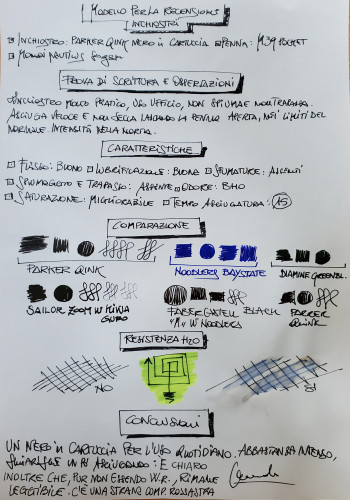 Modello per la recensioni
inchiostri
Inchiostro: Parker Quink nero in cartuccia Penna: M39 Pocket
Monoi Nautilus
Prova di scrittura e osservazioni
Inchiostro molto pratico, da ufficio, non spiuma e non
Asciuga veloce e non secca lasciando la penna aperta, nei limiti del
normale. Intensità nella norma.
Caratteristiche
Flusso: buono Lubrificazione: buona Sfumature: assenti
Spiumaggio e trapasso: assente Odore: boh
Saturazione: migliorabile Tempo asciugatura: 15
Comparazione
Parker Qink
Noodlers Baystate
Diamine
Sailor Zoom w Kiwa
Guro
Faber Castell Black
"M" w Noodlers
Parker
Quink
Resistenza H2O
NO
SI
Conclusioni
Un nero in cartuccia per l'uso quotidiano. Abbastanza intenso,
un po' asciugando: è chiaro
inoltre che, pur non essendo W.R., rimane
leggibile. C'è una strana comp. rossastra